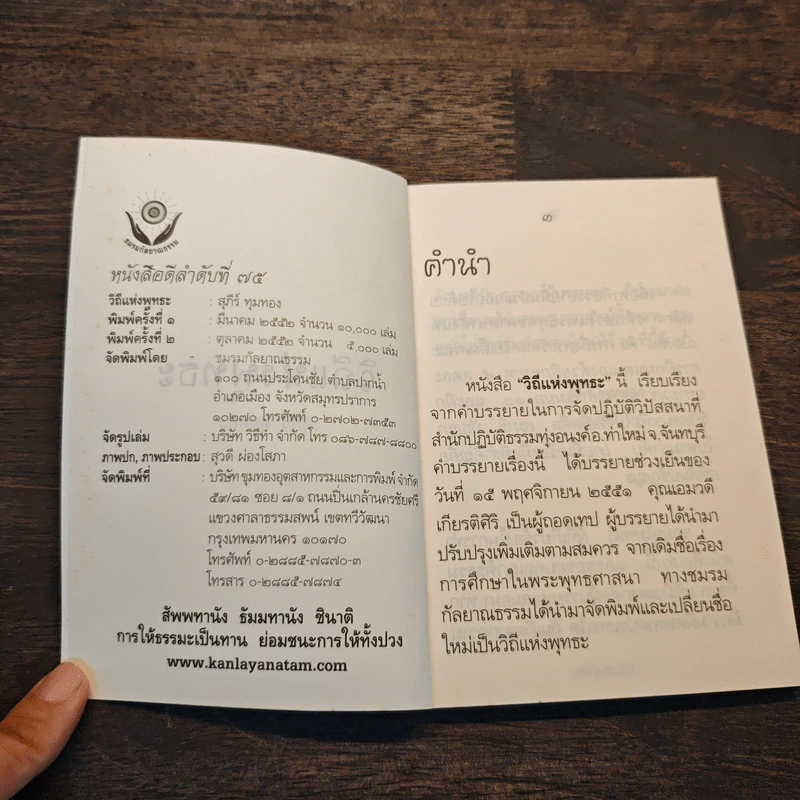 ชมรมกัลยาณธรรม
หนังสือดีลำดับที่ ๗๕
วิถีแห่งพุทธะ : สุภีร์ ทุมทอง
พิมพ์ครั้งที่ ๑ : มีนาคม ๒๕๕๒ จำนวน ๑๐,๐๐๐ เล่ม
พิมพ์ครั้งที่ ๒ : ตุลาคม ๒๕๕๒ จำนวน ๕,๐๐๐ เล่ม
จัดพิมพ์โดย - ชมรมกัลยาณธรรม
๑๐๐ ถนนประโคนชัย ตำบลปากน้ำ
อำเภอเมือง จังหวัดสมุทรปราการ
๑๐๒๗๐ โทรศัพท์ ๐-๒๗๐๒-๗๓๕๓
จัดรูปเล่ม : บริษัท วิธีทำ จำกัด โทร ๐๘๖-๗๘๗-๘๘๐๐
ภาพปก, ภาพประกอบ : สุวดี ผ่องโสภา
จัดพิมพ์ที่ : บริษัท ขุมทองอุตสาหกรรมและการพิมพ์ จำกัด
๕๙/๘๑ ซอย ๘/๑ ถนนปิ่นเกล้านครชัยศรี
แขวงศาลาธรรมสพน์ เขตทวีวัฒนา
กรุงเทพมหานคร ๑๐๑๗๐
โทรศัพท์ ๐-๒๘๘๕-๗๘๗๐-๓
โทรสาร ๐-๒๘๘๕-๗๘๗๔
สัพพทานัง ธัมมทานัง ชินาติ
การให้ธรรมะเป็นทาน ย่อมชนะการให้ทั้งปวง
www.kanlayanatam.com
๓
คำนำ
หนังสือ “วิถีแห่งพุทธะ” นี้ เรียบเรียง
จากคำบรรยายในการจัดปฏิบัติวิปัสสนาที่
สำนักปฏิบัติธรรมทุ่งอนงค์อ.ท่าใหม่ จ.จันทบุรี
คำบรรยายเรื่องนี้ ได้บรรยายช่วงเย็นของ
วันที่ ๑๕ พฤศจิกายน ๒๕๕๑ คุณเอมวดี
เกียรติศิริ เป็นผู้ถอดเทป ผู้บรรยายได้นำมา
ปรับปรุงเพิ่มเติมตามสมควร จากเดิมชื่อเรื่อง
การศึกษาในพระพุทธศาสนา ทางชมรม
กัลยาณธรรมได้นำมาจัดพิมพ์และเปลี่ยนชื่อ
ใหม่เป็นวิถีแห่งพุทธะ